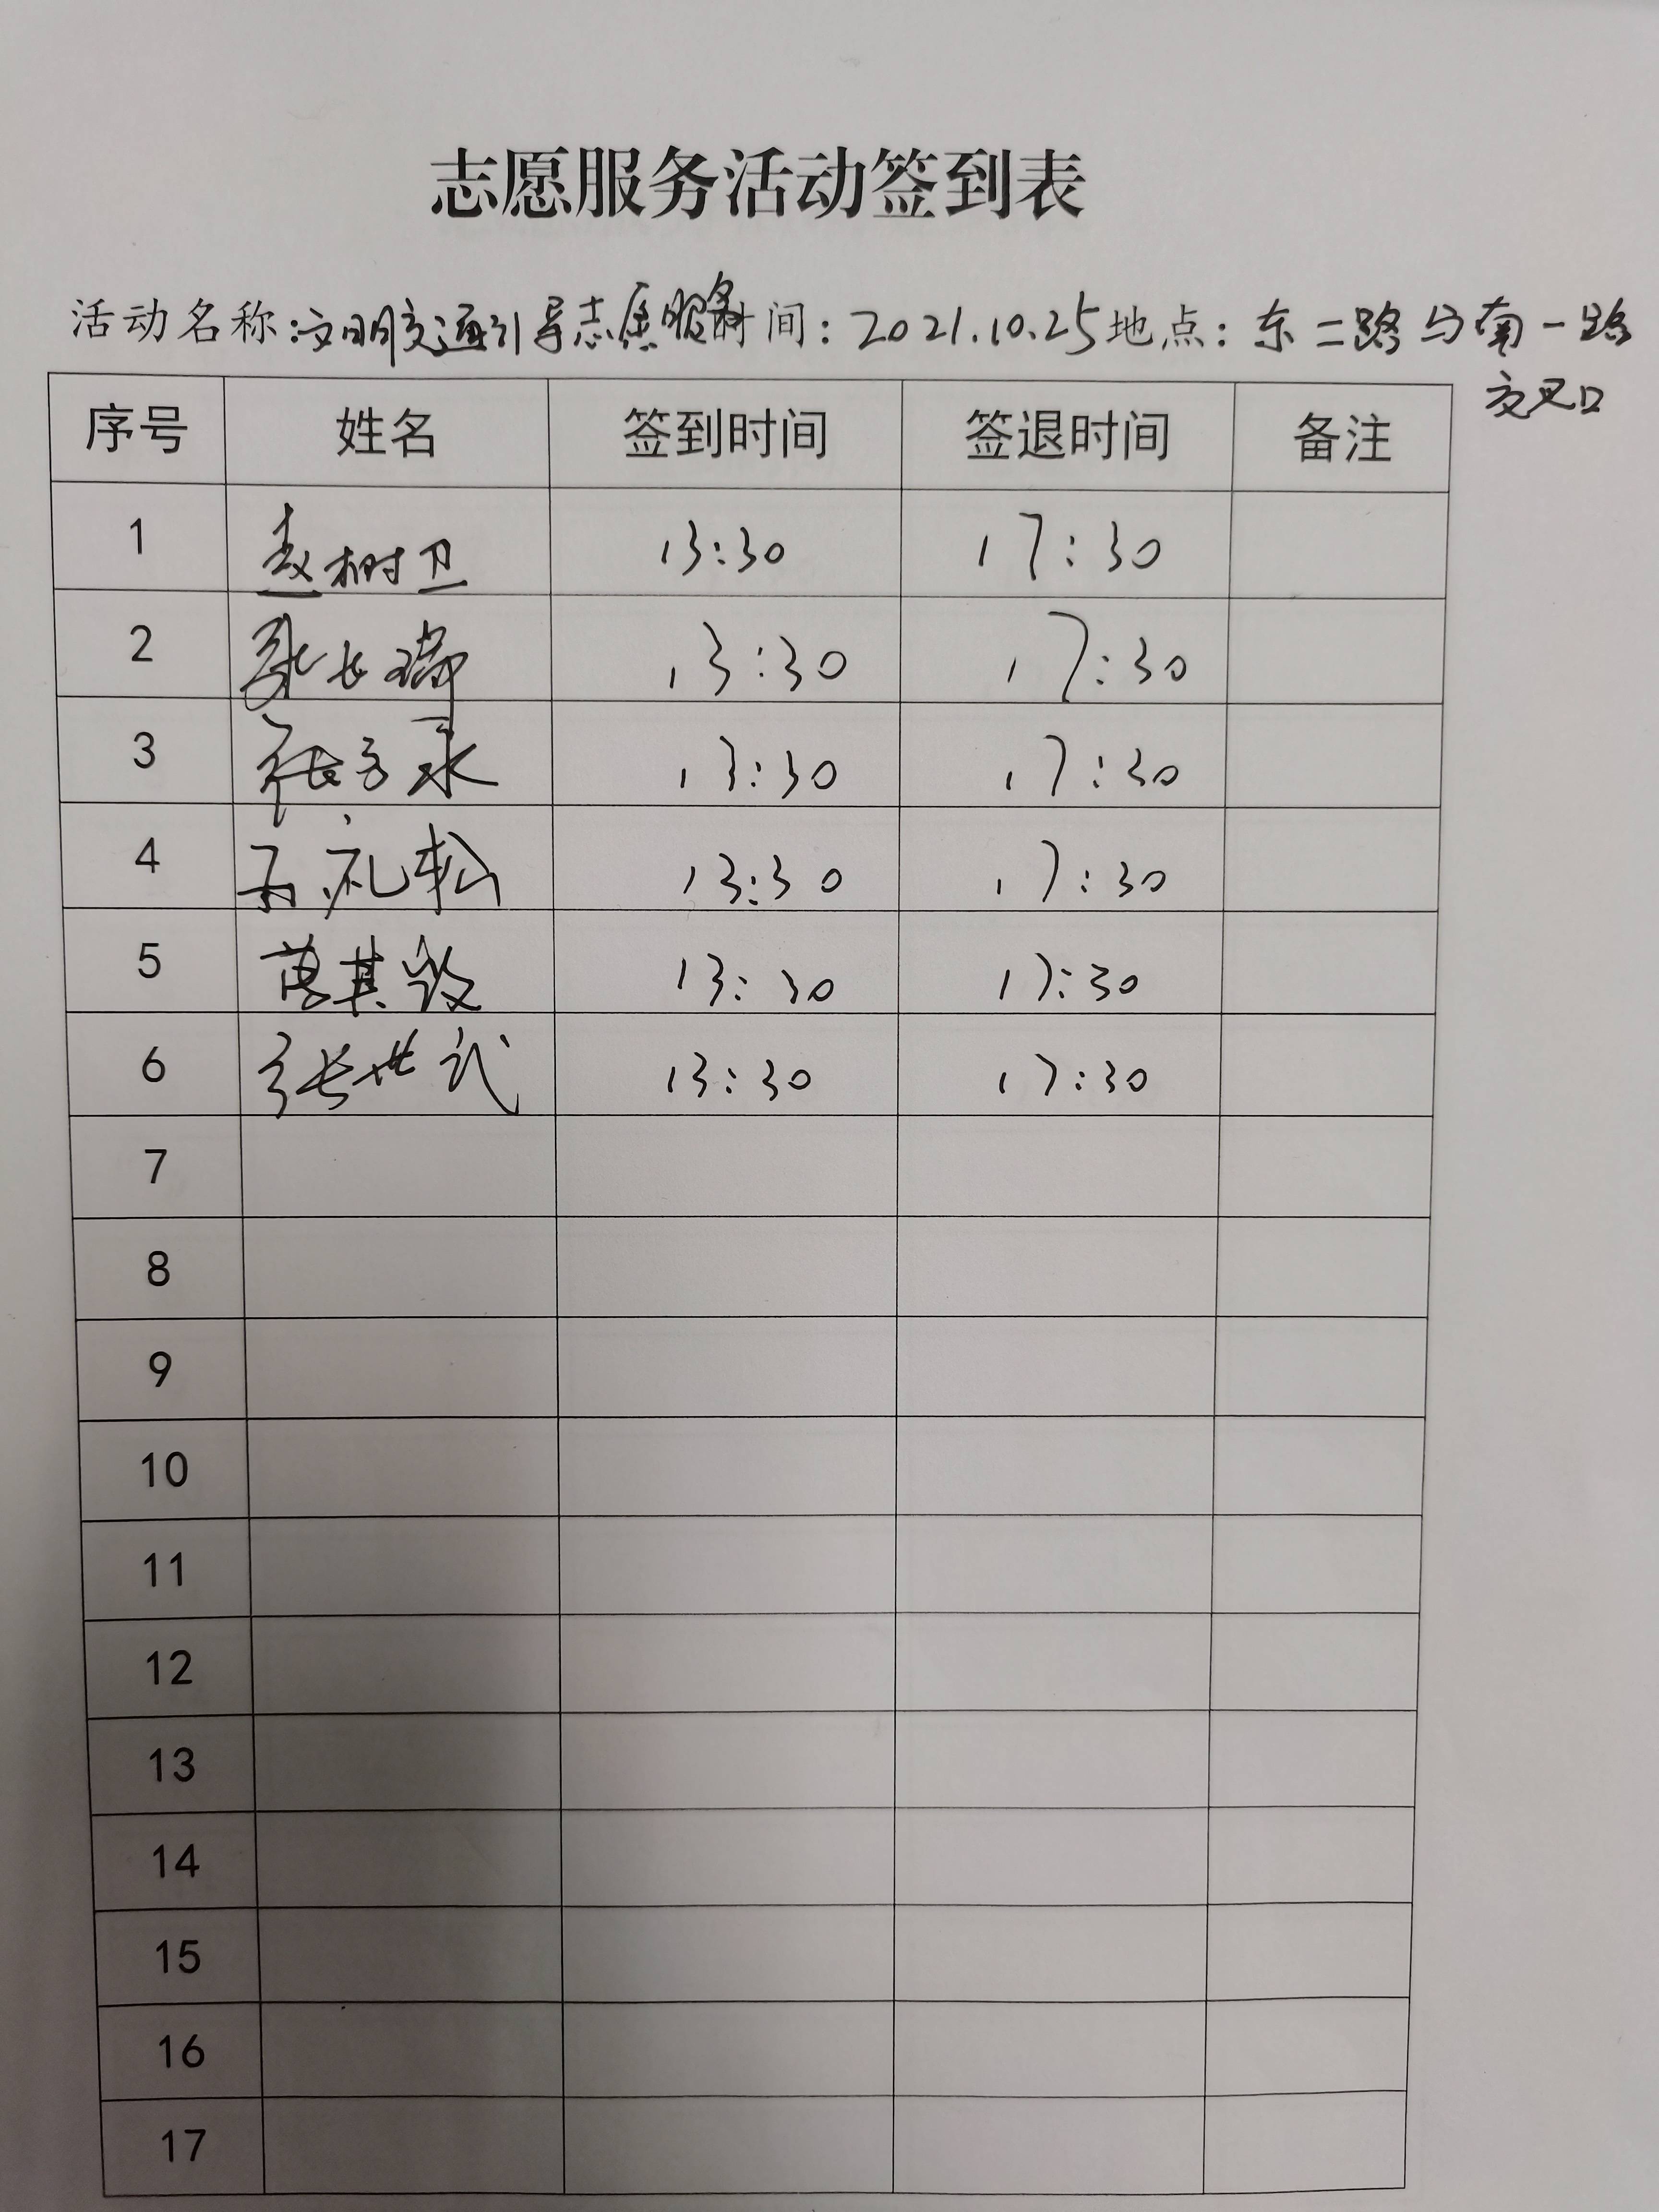 志愿服务活动签到表
活动名称:文明交通引导志愿服务 时间:2021.10.25 地点:东二路与南一路
交叉口
序号 姓名 签到时间 签退时间 备注
1 赵树卫 13:30 17:30
2 张长瑞 13:30 17:30
3 张 13:30 17:30
4 礼松 13:30 17:30
5 其 13:30 17:30
6 张世武 13:30 17:30
7
8
9
10
11
12
13
14
15
16
17